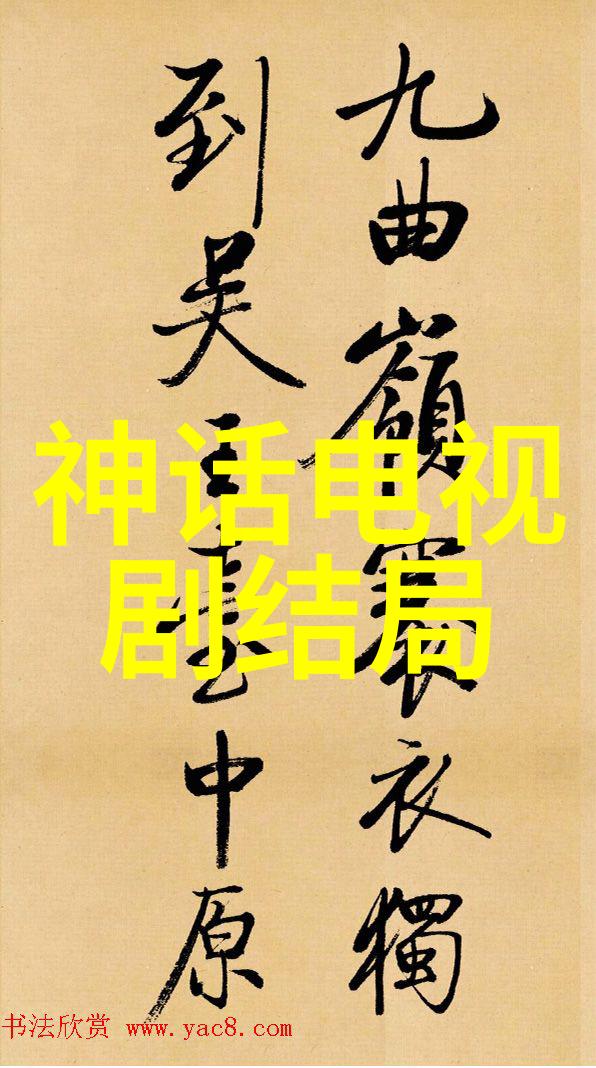 九曲嶺褰衣獨
到吳王臺中原
神话电视
剧结局
书法欣赏 www.yac8.com